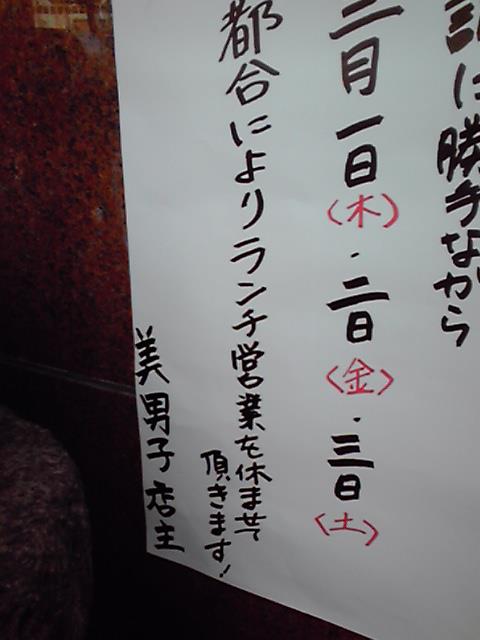 誠に勝手ながら
二月一日(木)・二日(金)・三日(土)
都合によりランチ営業を休ませて
頂きます!
美男子店主